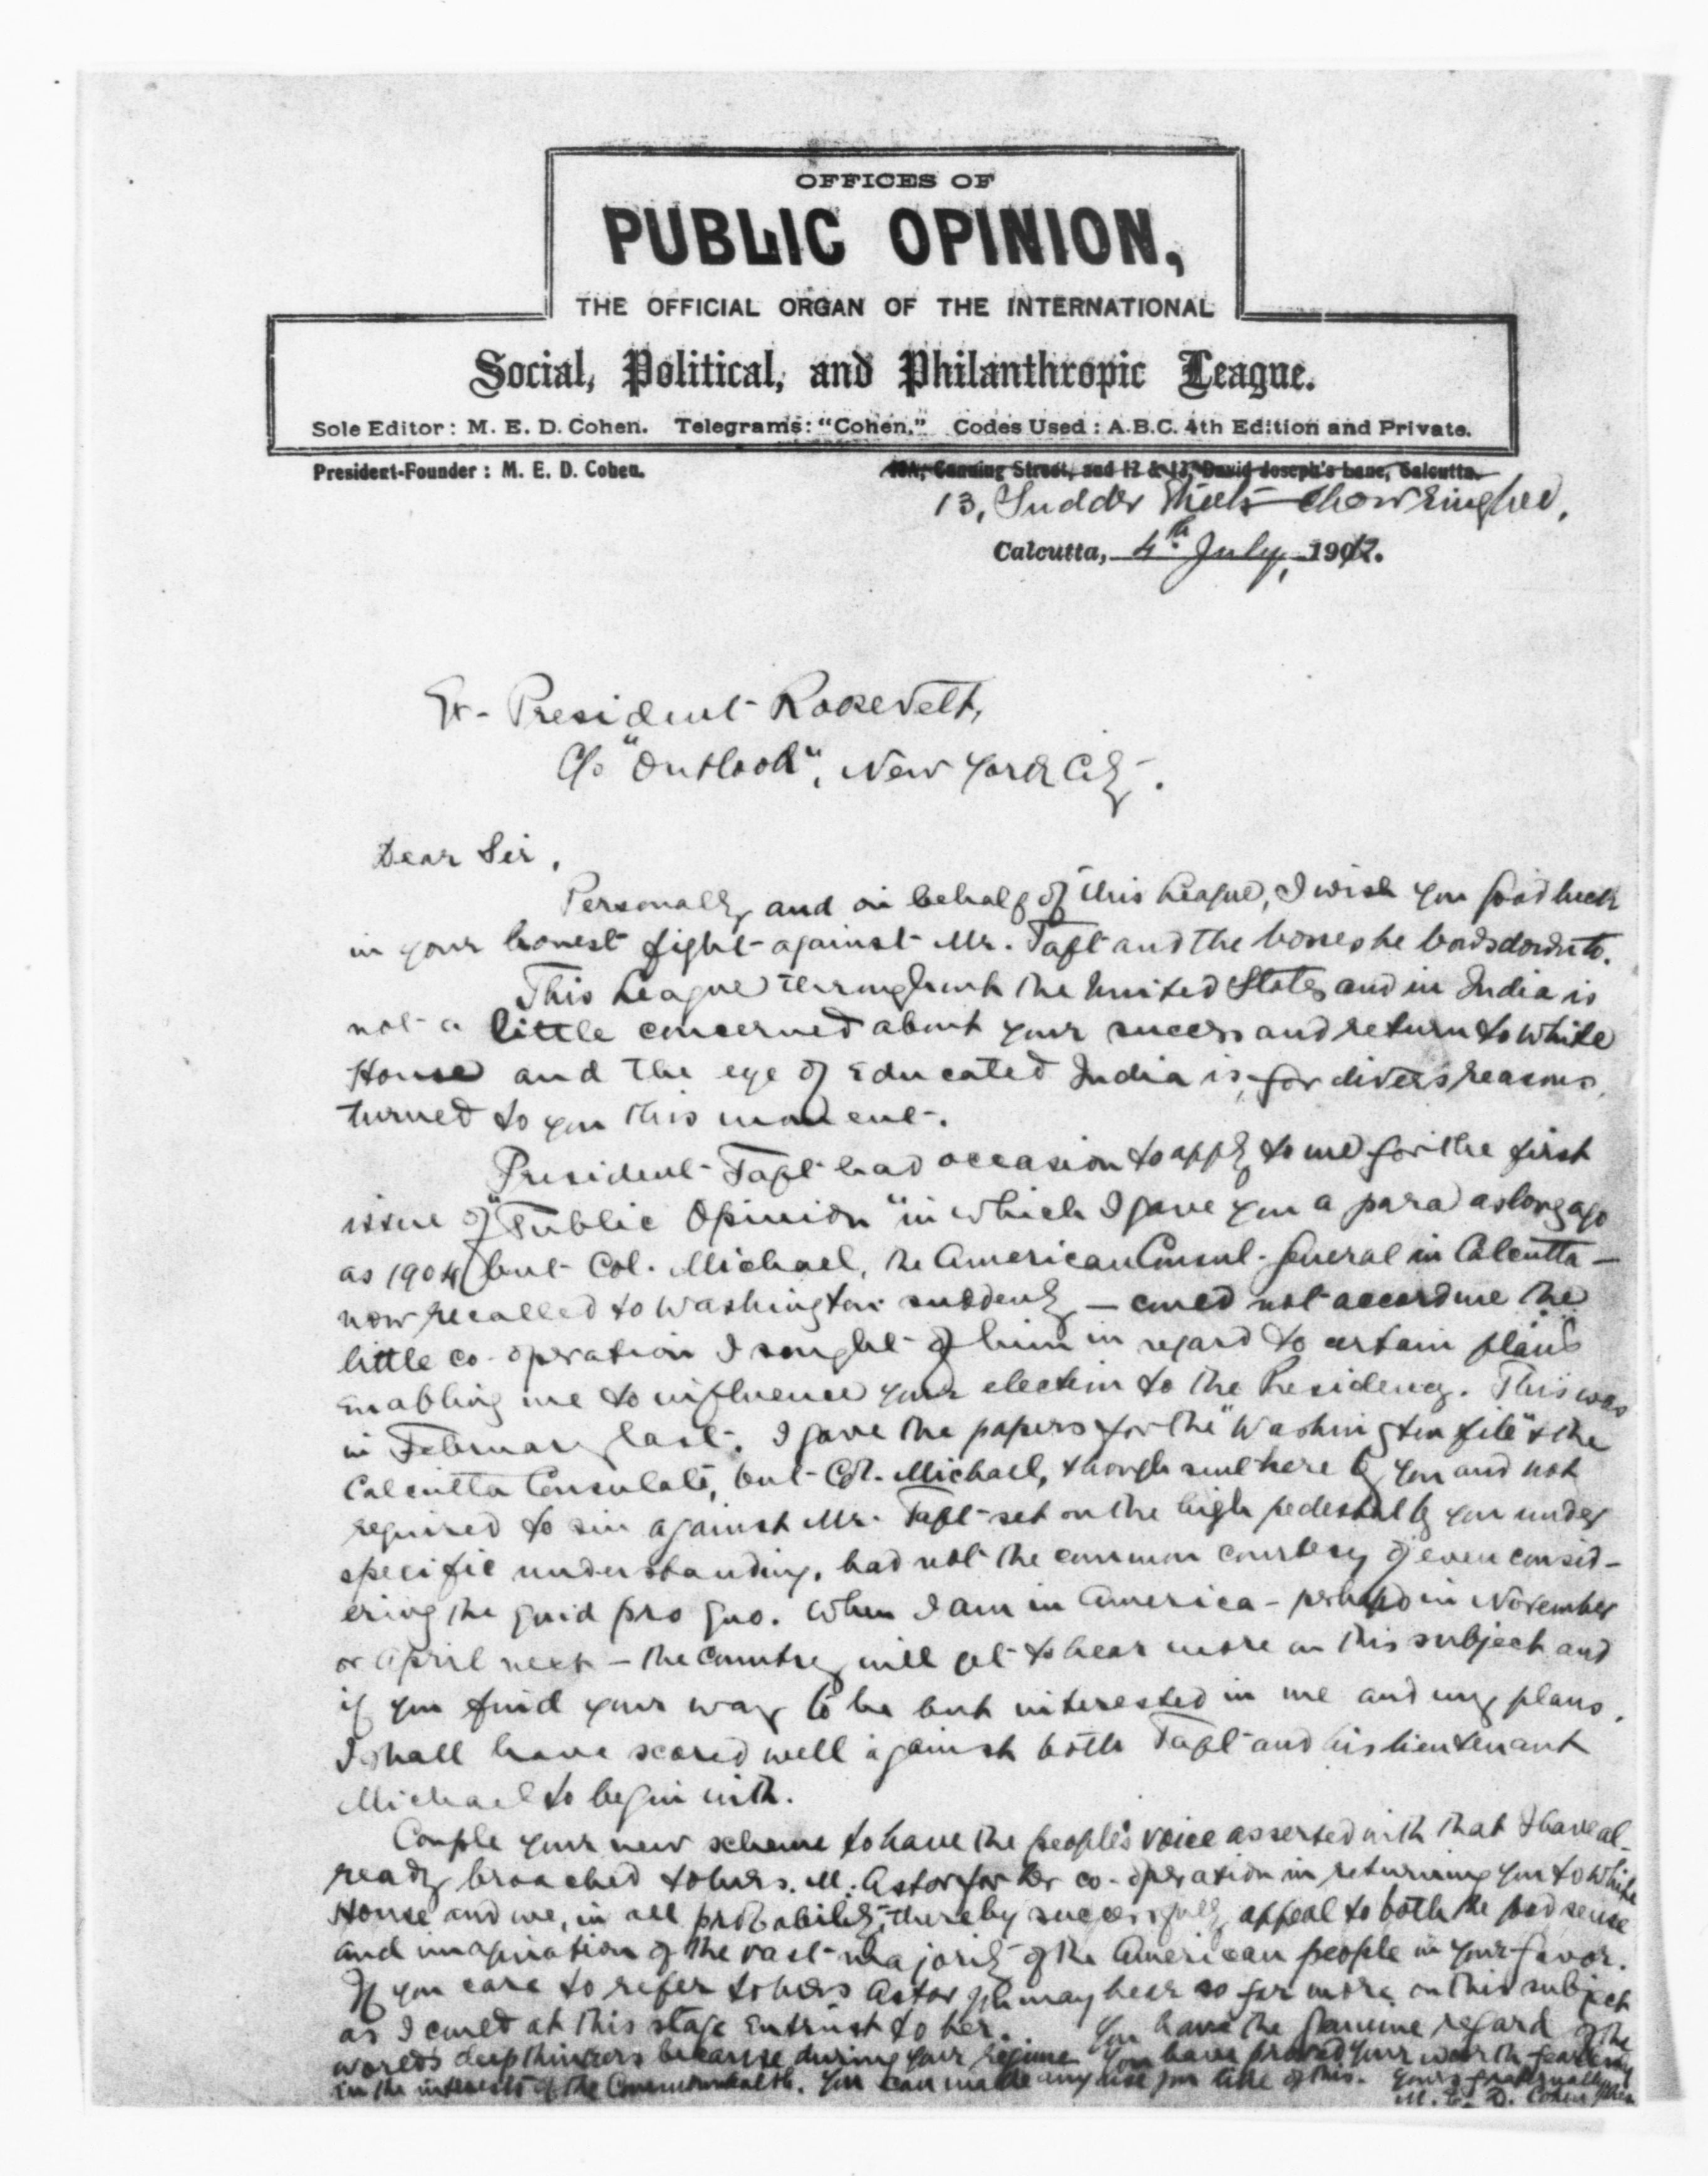 OFFICES OF
PUBLIC OPINION,
THE OFFICIAL ORGAN OF THE INTERNATIONAL
Social, Political, and Philanthropic League.
Sole Editor: M. E. D. Cohen. Telegrams: "Cohen." Codes Used: A.B.C. 4th Edition and Private.
President-Founder: M. E. D. Cohen.
Canning Street, and 12 & 13, David Joseph's Lane, Calcutta.
13, Sudder Street Chowringhee,
Calcutta, 4th July, 1912.
Ex-President Roosevelt,
C/o "Outlook", New York City.
Dear Sir,
Personally and on behalf of this League, I wish you good luck
in your honest fight against Mr. Taft and the bosses he bows down to.
This League throughout the United States and in India is
not a little concerned about your success and return to White
House and the eye of Educated India is, for divers reasons,
turned to you this moment.
President Taft had occasion to apply to me for the first
issue of "Public Opinion" in which I gave you a para as long ago
as 1904 but Col. Michael, the American Consul-General in Calcutta —
now recalled to Washington suddenly — cared not accord me the
little co-operation I sought of him in regard to certain plans
enabling me to influence your election to the Presidency. This was
in February last. I gave the papers for the "Washington file" to the
Calcutta Consulate, but Col. Michael, though sent here by you and not
required to sin against Mr. Taft set on the high pedestal by you under
specific understanding, had not the common courtesy of even consid-
ering the quid pro quo. When I am in America - perhaps in November
or April next - the country will get to hear more on this subject and
if you find your way to be but interested in me and my plans,
I shall have scored well against both Taft and his lieutenant
Michael to begin with.
Couple your new scheme to have the people's voice asserted with that I have al-
ready broached to Mrs. M. Astor for her co-operation in returning you to White
House and we, in all probability, thereby successfully appeal to both the good sense
and imagination of the vast majority of the American people in your favor.
If you care to refer to Mrs Astor you may hear so far more on this subject
as I cared at this stage entrust to her. You have the genuine regard of the
world's deep thinkers because during your regime you have proved your worth fearlessly
in the interests of the Commonwealth. You can make any use you like of this. Yours fraternally
M. E. D. Cohen